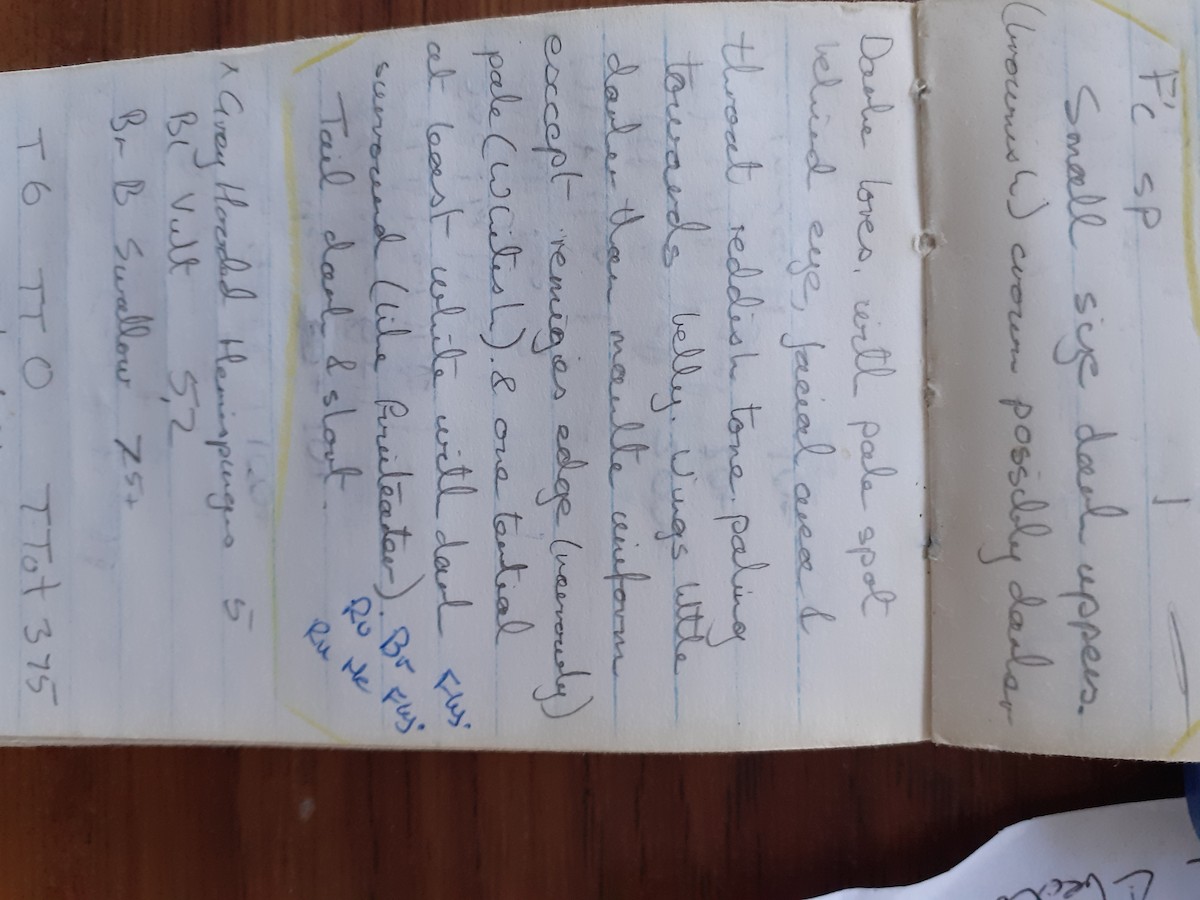 F'c sp 1
Small size dark uppers.
(brownish) crown possibly darker
Darke lores, with pale spot
behind eye, facial area &
throat reddish tone. paling
towards belly. Wings little
darker than maulte uniform
except remiges edge (narrowly)
pale (Witish). & one tertial
at least white with dark
surround (like Fruiteater).
Tail dark & short.
Flyc
Br Flyc
Ru
Ru
x Grey Hooded Hemispingus 5
Bl Vult 5,2
Br B Swallow 75+
T6 TTO TTot 375